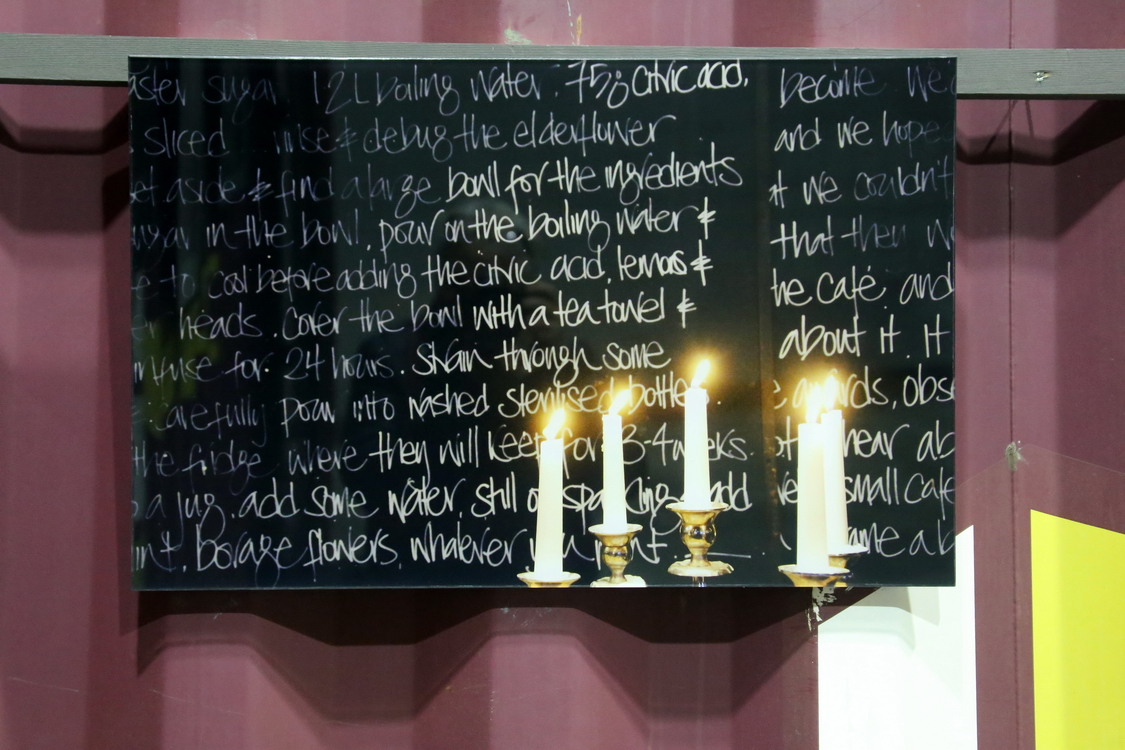 aster sugar 1.2L boiling water. 75g citric acid.
sliced rinse & debug the elderflower
et aside & find a large bowl for the ingredients
in the bowl, pour on the boiling water &
e to cool before adding the citric acid, lemons &
er heads. Cover the bowl with a tea towel &
infuse for 24 hours. Strain through some
carefully pour into washed sterilised bottles.
the fridge where they will keep for 3-4 weeks.
a jug, add some water, still or sparkling, add
int, borage flowers, whatever you want.
become we
and we hope
it we couldn't
that then w
he café, and
about it. It
obse
near ab
small café
ame a b